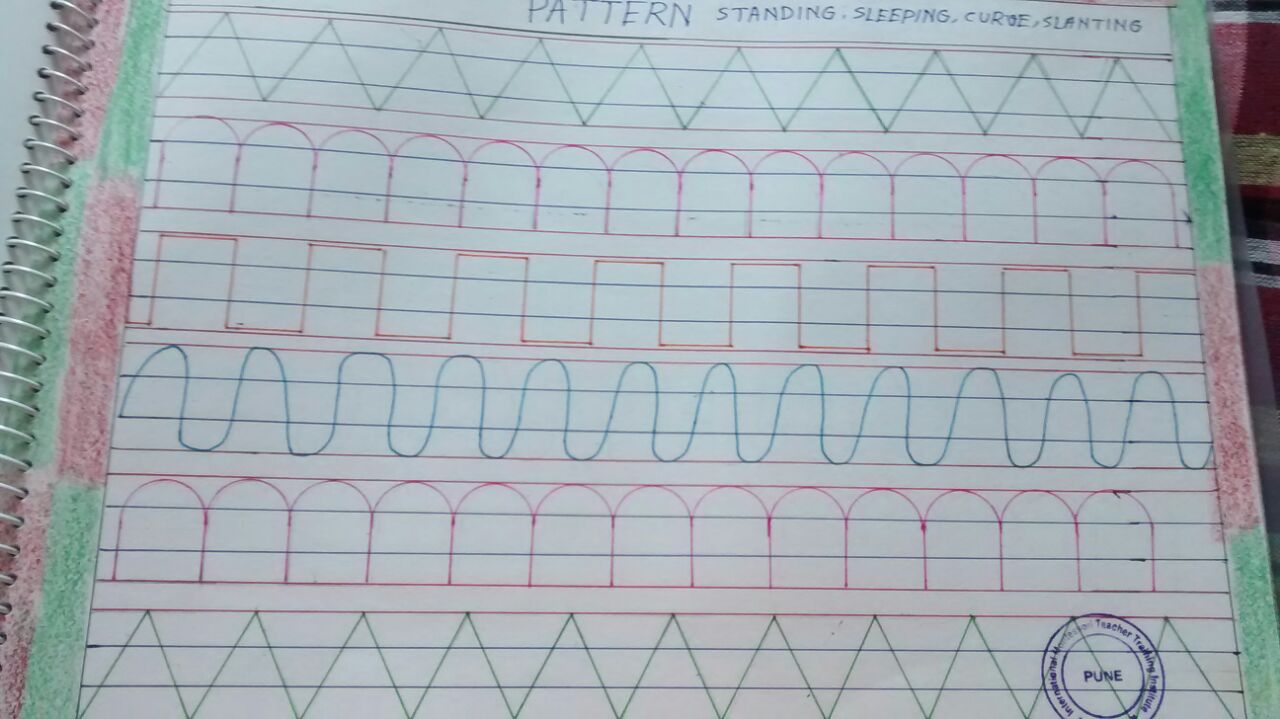 PATTERN STANDING, SLEEPING, CURVE, SLANTING
International Montessori Teacher Training Institute
PUNE